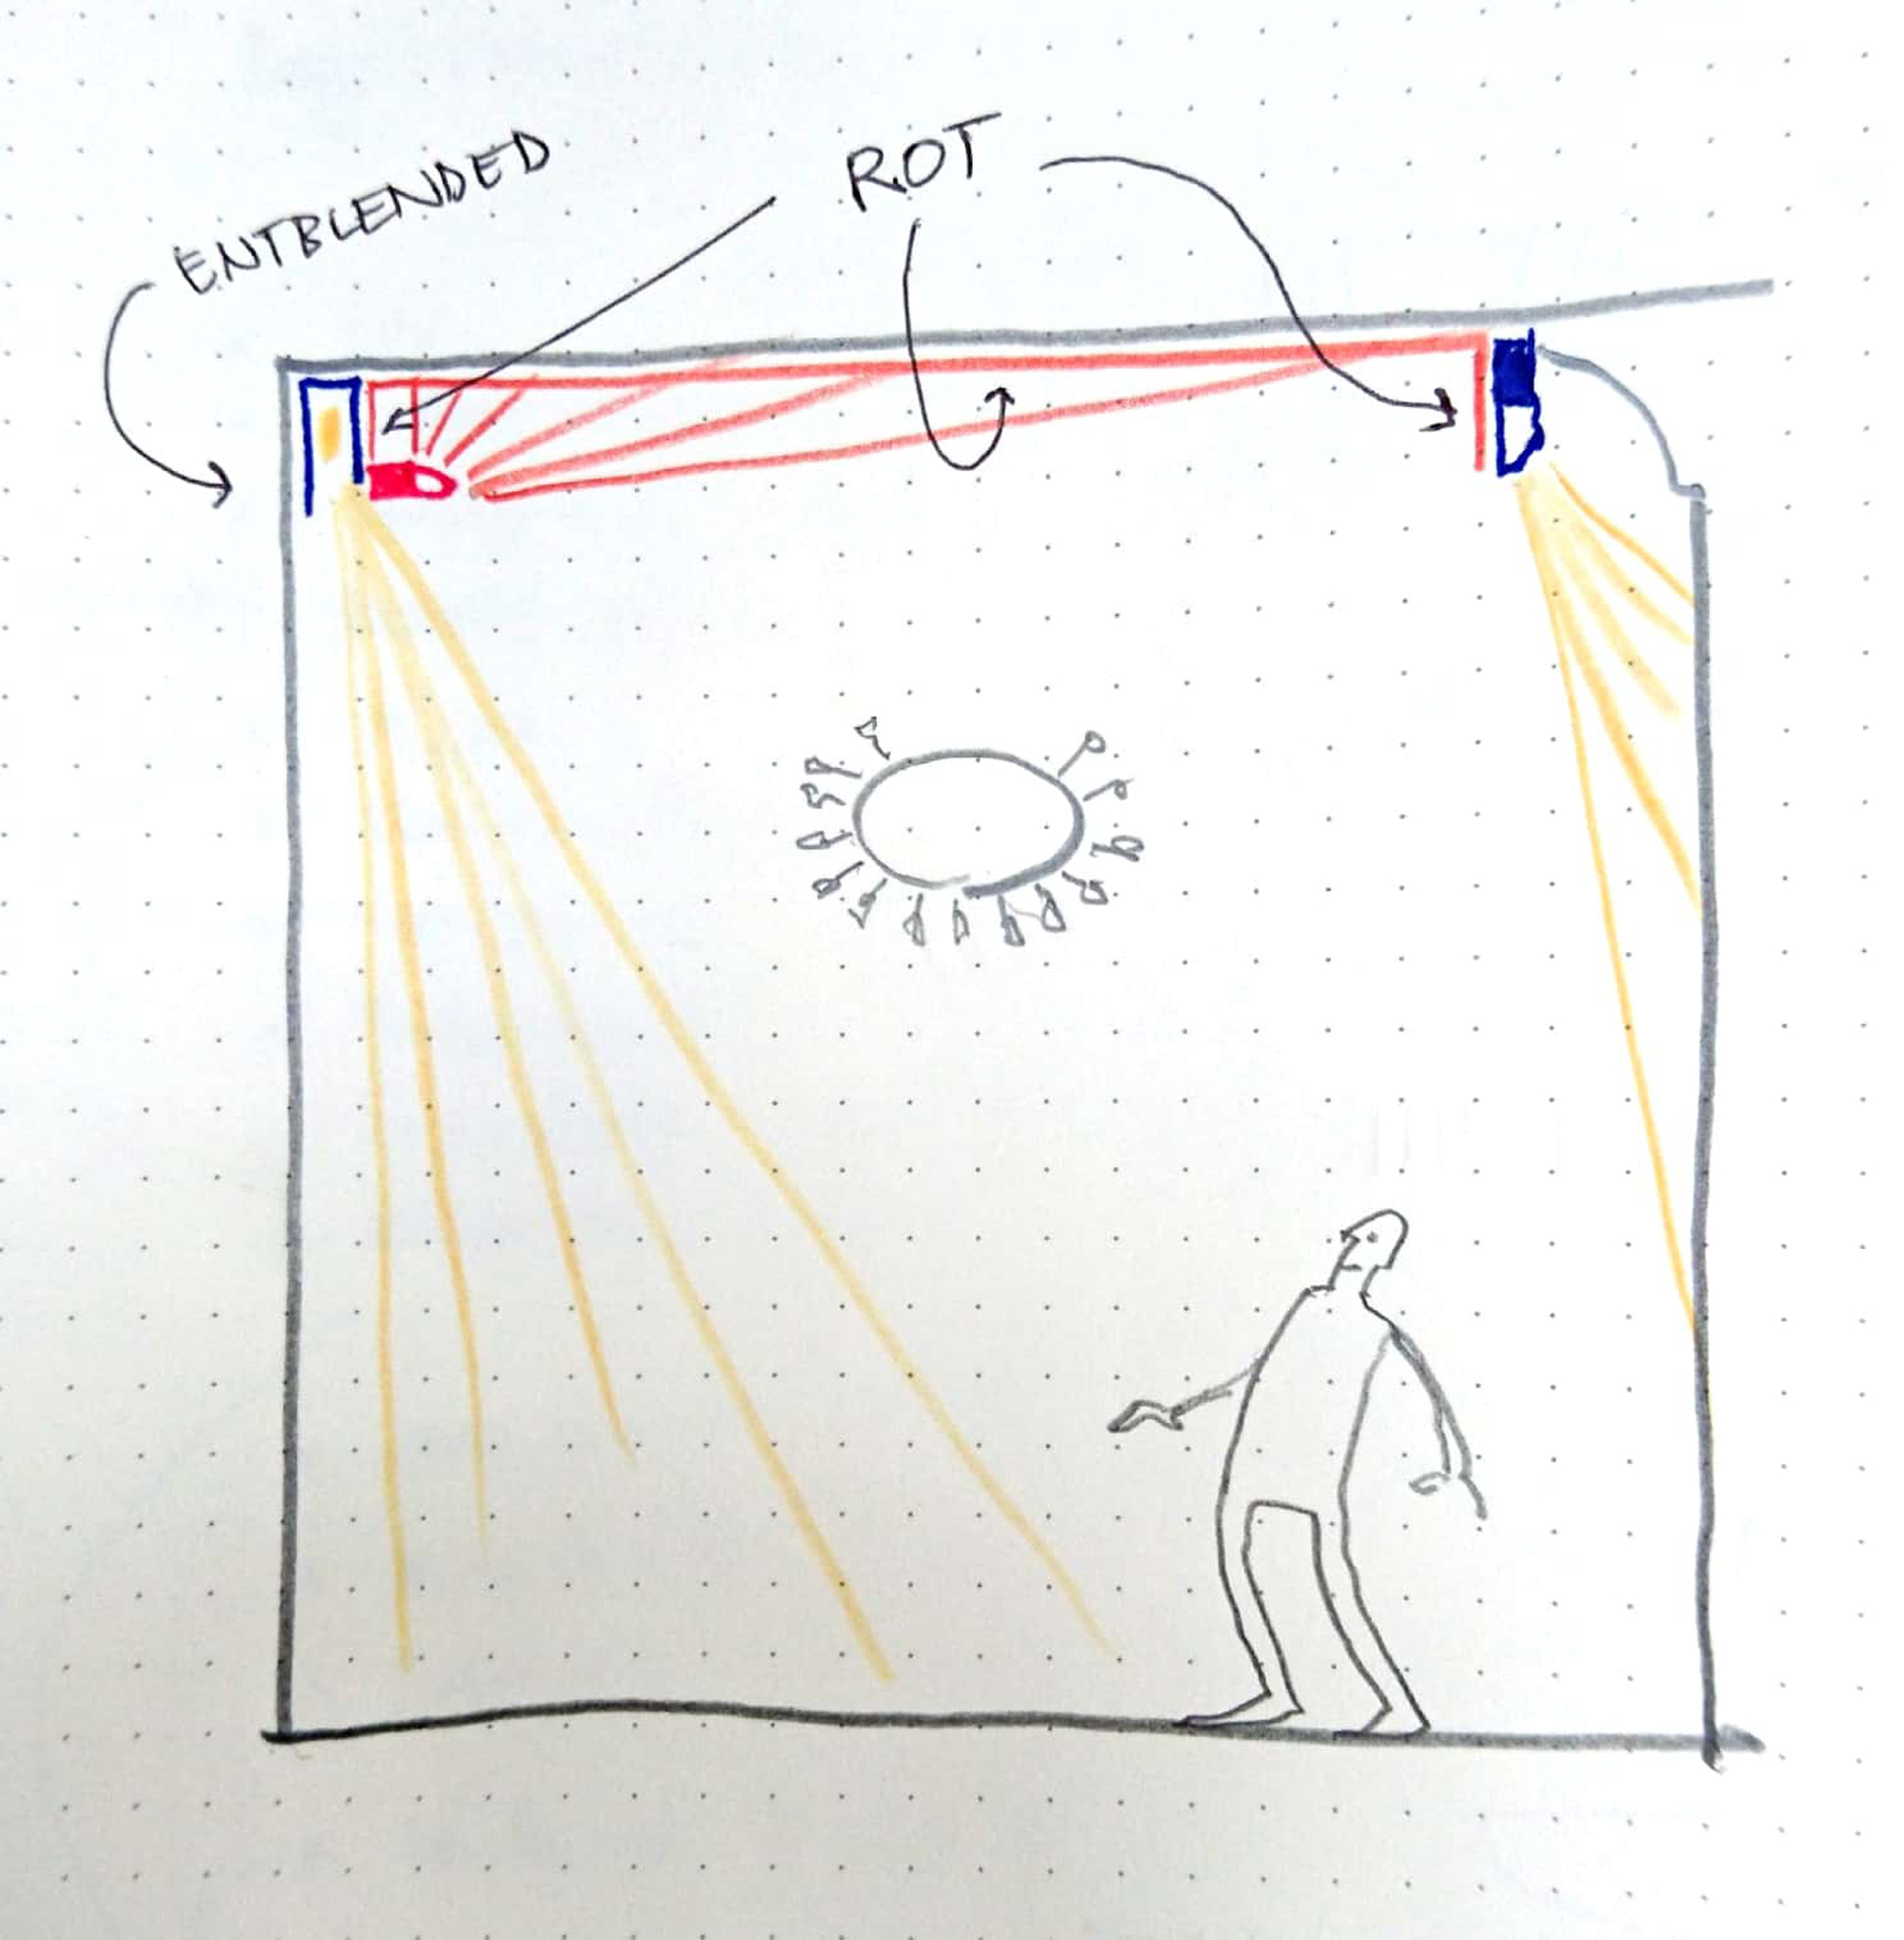 ENTBLENDED
ROT